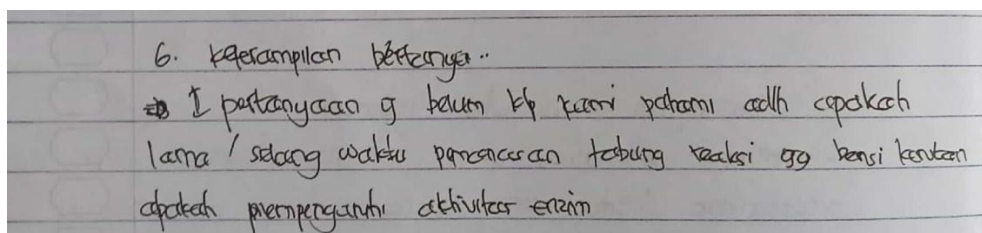 6. keterampilan bertanya..
→ 1 pertanyaan yg belum kami pahami adlh apakah
lama / selang waktu pencampuran tabung reaksi yg berisi larutan
apakah mempengaruhi aktivitas enzim